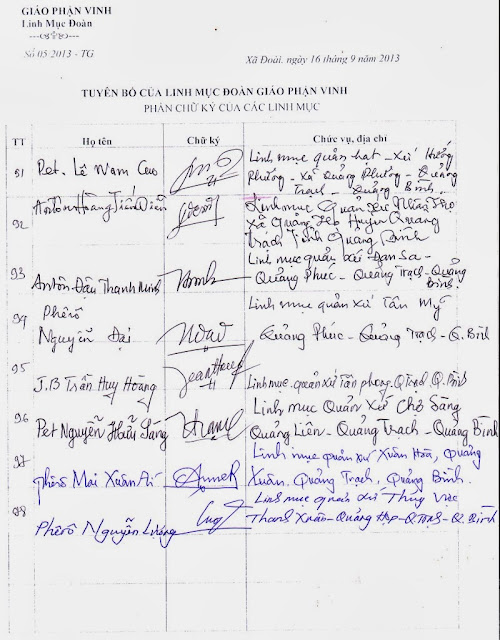 GIÁO PHẬN VINH
Linh Mục Đoàn
Số 05/2013 - TG
Xã Đoài, ngày 16 tháng 9 năm 2013
TUYÊN BỐ CỦA LINH MỤC ĐOÀN GIÁO PHẬN VINH
PHẦN CHỮ KÝ CỦA CÁC LINH MỤC
TT Họ tên Chữ ký Chức vụ, địa chỉ
91 Pet. Lê Nam Cao Linh mục quản hạt - xứ Hướng
Phương - Xã Quảng Phương - Quảng
Trạch - Quảng Bình.
92 Antôn Hoàng Tiến Diễn Linh mục Quản xứ Nhân Thọ
Xã Quảng Huyện Quảng
Trạch Tỉnh Quảng Bình
93 Antôn Đậu Thanh Minh Linh mục quản xứ Đan Sa -
Quảng Phúc - Quảng Trạch - Quảng
Bình.
94 Phêrô
Nguyễn Đại Linh mục quản xứ Tân Mỹ
Quảng Phúc - Quảng Trạch - Q. Bình
95 J.B Trần Huy Hoàng Linh mục quản xứ Tân phong. Q Trạch Q. Bình
96 Pet Nguyễn Hữu Sáng Linh mục Quản Xứ Chợ Sàng
Quảng Liên - Quảng Trạch - Quảng Bình
97 Phêrô Mai Xuân Ái Linh mục quản xứ Xuân Hòa, Quảng
Xuân. Quảng Trạch, Quảng Bình.
98 Phêrô Nguyễn Lương Linh mục quản xứ Thủy Vực
Thanh Xuân - Quảng Hợp - Q. Trạch - Q. Bình